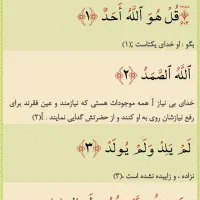 قُلْ هُوَ ٱللَّهُ أَحَدٌ ﴿١﴾
بگو : او خدای یکتاست ؛(١)
ٱللَّهُ ٱلصَّمَدُ ﴿٢﴾
خدای بی نیاز [ همه موجودات هستی که نیازمند و عین فقرند برای
رفع نیازشان روی به او کنند و از حضرتش گدایی نمایند . ](٢)
لَمْ يَلِدْ وَلَمْ يُولَدْ ﴿٣﴾
نزاده ، و زاییده نشده است ،(٣)